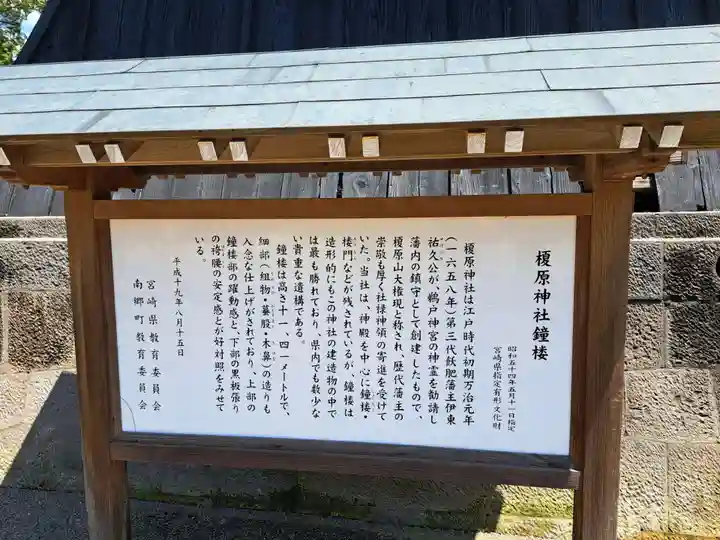 榎原神社鐘楼
昭和五十四年五月十一日指定
宮崎県指定有形文化財
榎原神社は江戸時代初期万治元年
(一六五八年)第三代飫肥藩主伊東
祐久公が、鵜戸神宮の神霊を勧請し
藩内の鎮守として創建したもので、
榎原山大権現と称され、歴代藩主の
崇敬も厚く社禄神領の寄進を受けて
いた。当社は、神殿を中心に鐘楼・
楼門などが残されているが、鐘楼は
造形的にもこの神社の建造物の中で
は最も勝れており、県内でも数少な
い貴重な遺構である。
鐘楼は高さ十一、四一メートルで、
細部(組物・蟇股・木鼻)の造りも
入念な仕上げがされており、上部の
鐘楼部の躍動感と、下部の黒板張り
の袴腰の安定感とが好対照をみせて
いる。
平成十九年八月十五日
宮崎県教育委員会
南郷町教育委員会